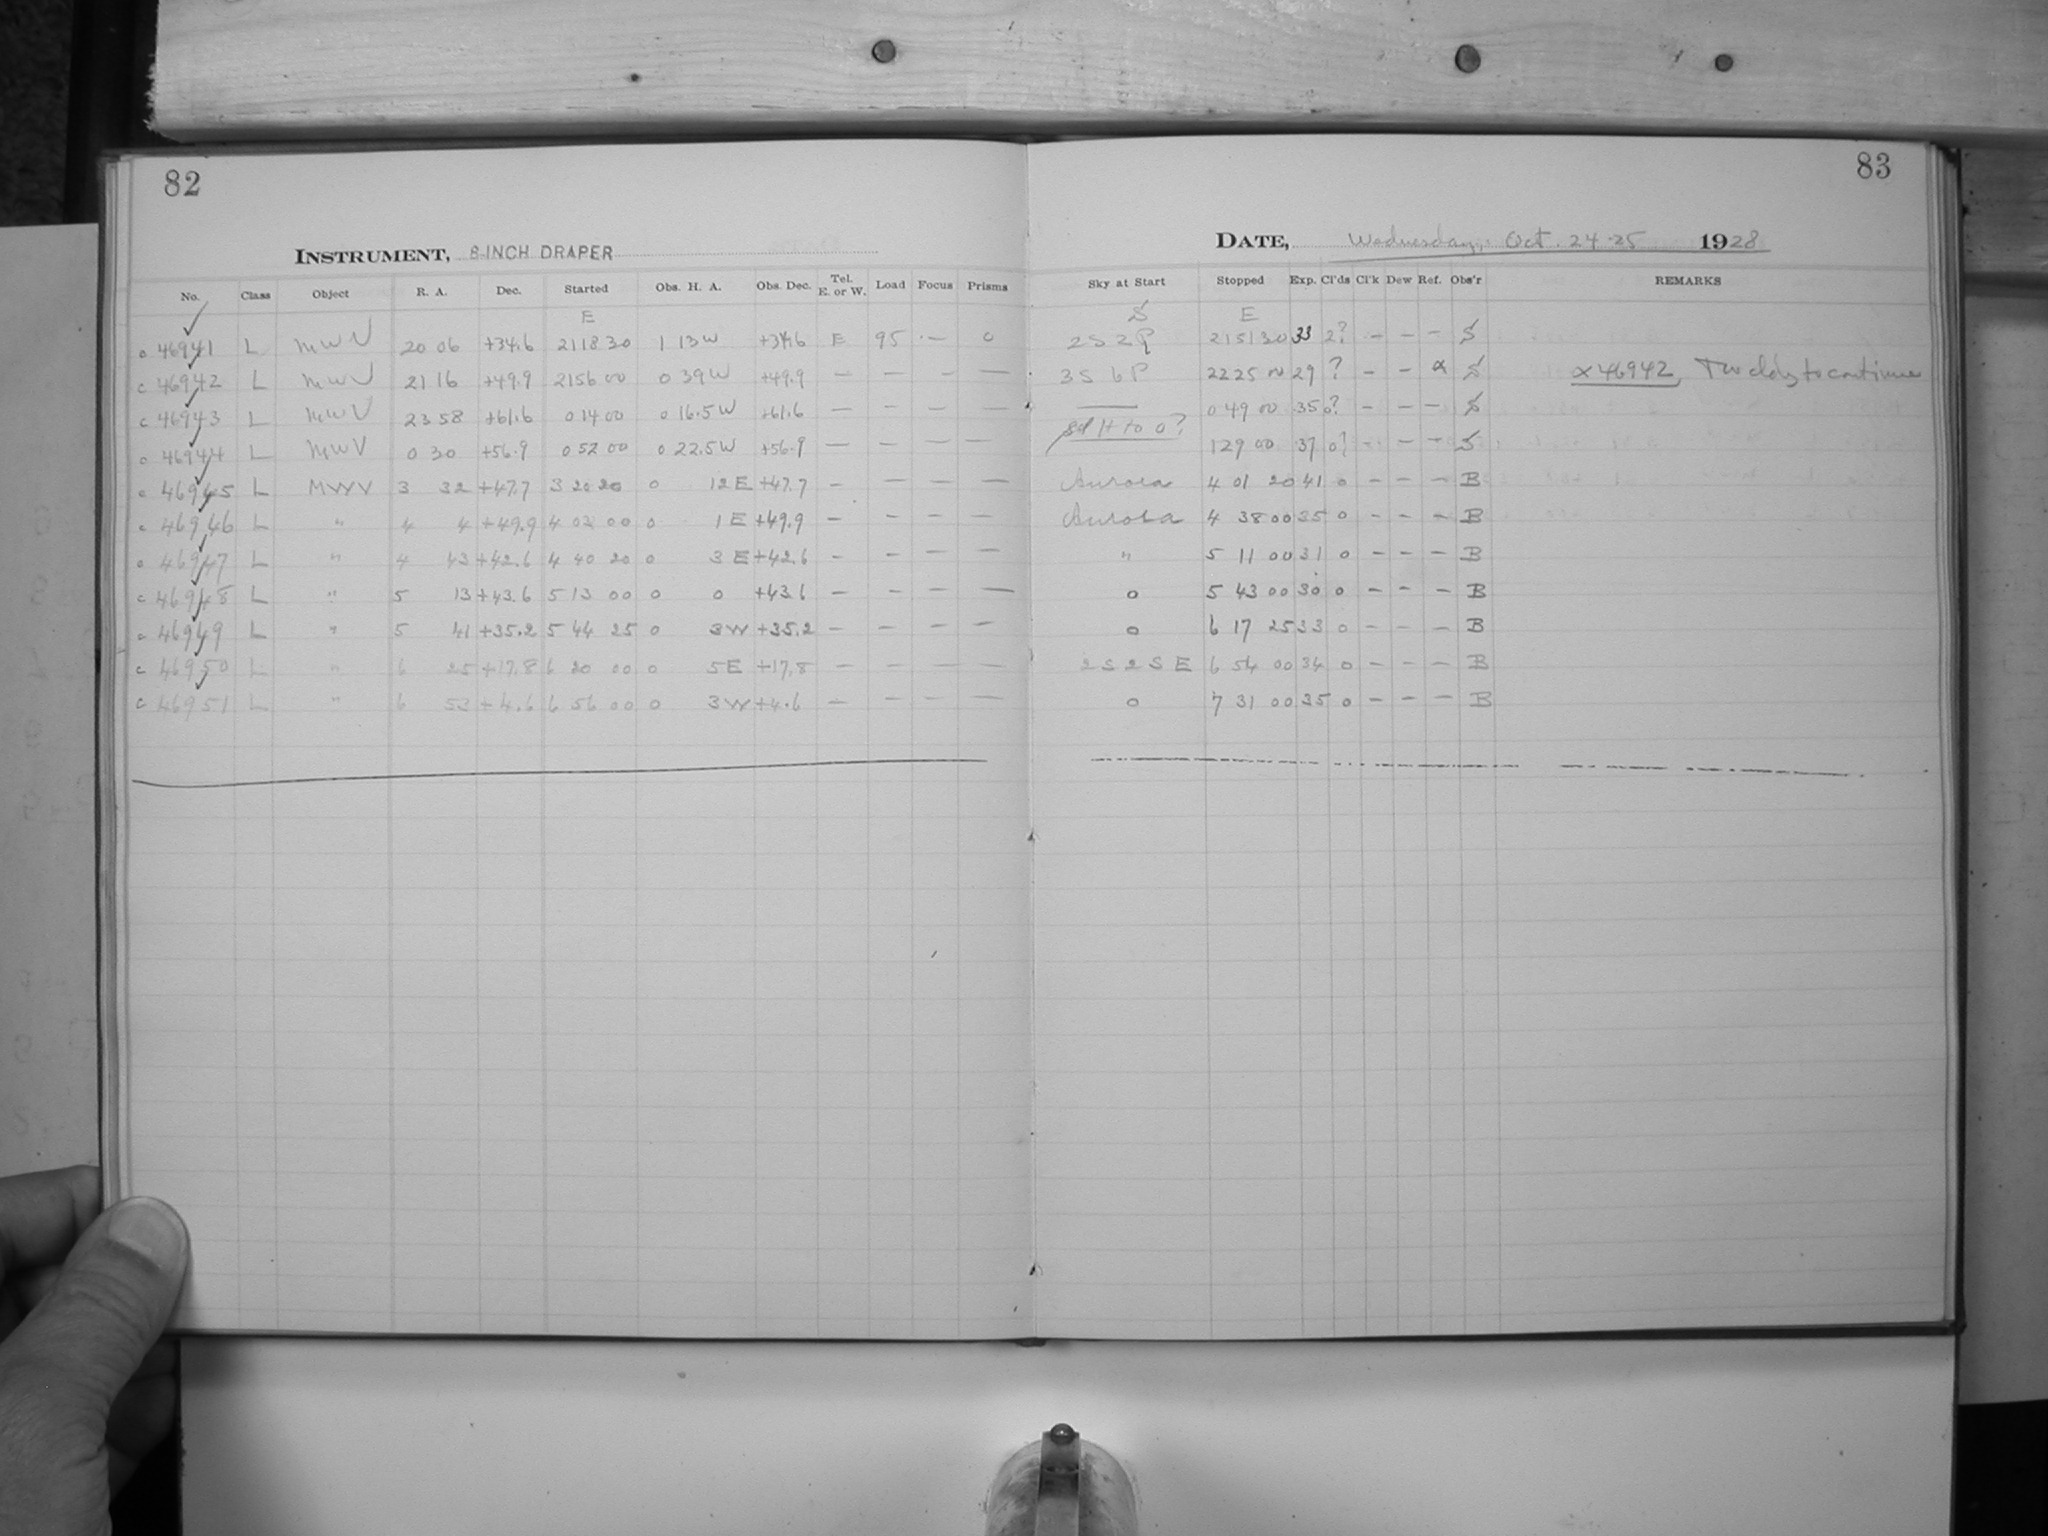 82
INSTRUMENT, 8-INCH DRAPER
No. Class Object R. A. Dec. Started Obs. H. A. Obs. Dec. Tel. E. or W. Load Focus Prisms
E
c 46941 L MWV 20 06 +34.6 21 18 30 1 13W +34.6 E 95 — 0
c 46942 L MWV 21 16 +49.9 21 56 00 0 39W +49.9 — — — —
c 46943 L MWV 23 58 +61.6 0 14 00 0 16.5W +61.6 — — — —
c 46944 L MWV 0 30 +56.9 0 52 00 0 22.5W +56.9 — — — —
c 46945 L MWV 3 32 +47.7 3 20 20 0 12E +47.7 — — — —
c 46946 L " 4 4 +49.9 4 03 00 0 1E +49.9 — — — —
c 46947 L " 4 43 +42.6 4 40 20 0 3E +42.6 — — — —
c 46948 L " 5 13 +43.6 5 13 00 0 0 +43.6 — — — —
c 46949 L " 5 41 +35.2 5 44 25 0 3W +35.2 — — — —
c 46950 L " 6 25 +17.8 6 20 00 0 5E +17.8 — — — —
c 46951 L " 6 53 +4.6 6 56 00 0 3W +4.6 — — — —
83
DATE, Wednesday, Oct. 24-25 1928
Sky at Start Stopped Exp. Cl'ds Cl'k Dew Ref. Obs'r REMARKS
S E
2S 2P 21 51 30 33 2? — — — S
3S 6P 22 25 00 29 ? — — α S α 46942, Too cldy to continue
— 0 49 00 35 0? — — — S
to 0? 1 29 00 37 0? — — — S
Aurora 4 01 20 41 0 — — — B
Aurora 4 38 00 35 0 — — — B
" 5 11 00 31 0 — — — B
0 5 43 00 30 0 — — — B
0 6 17 25 33 0 — — — B
2S 2SE 6 54 00 34 0 — — — B
0 7 31 00 35 0 — — — B